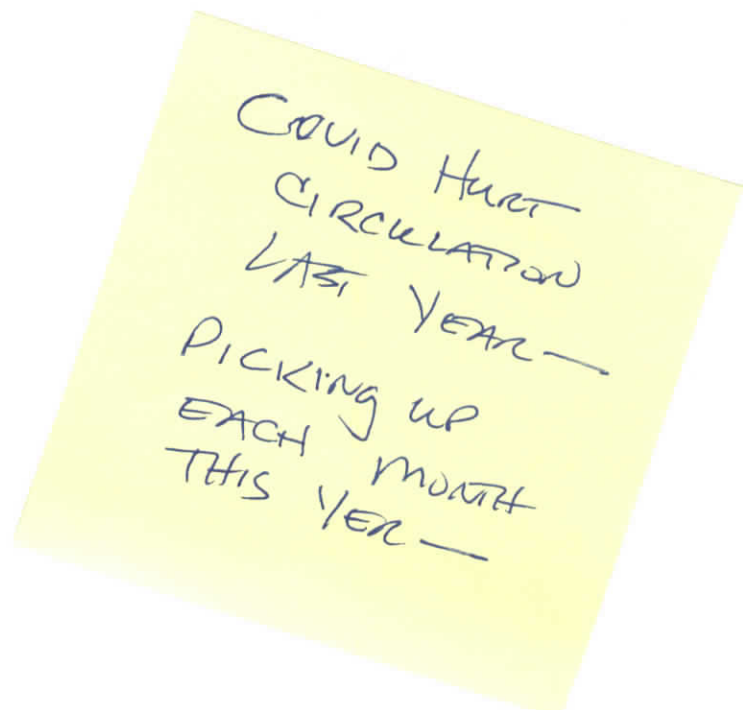 COVID HURT
CIRCULATION
LAST YEAR —
PICKING UP
EACH MONTH
THIS YER —